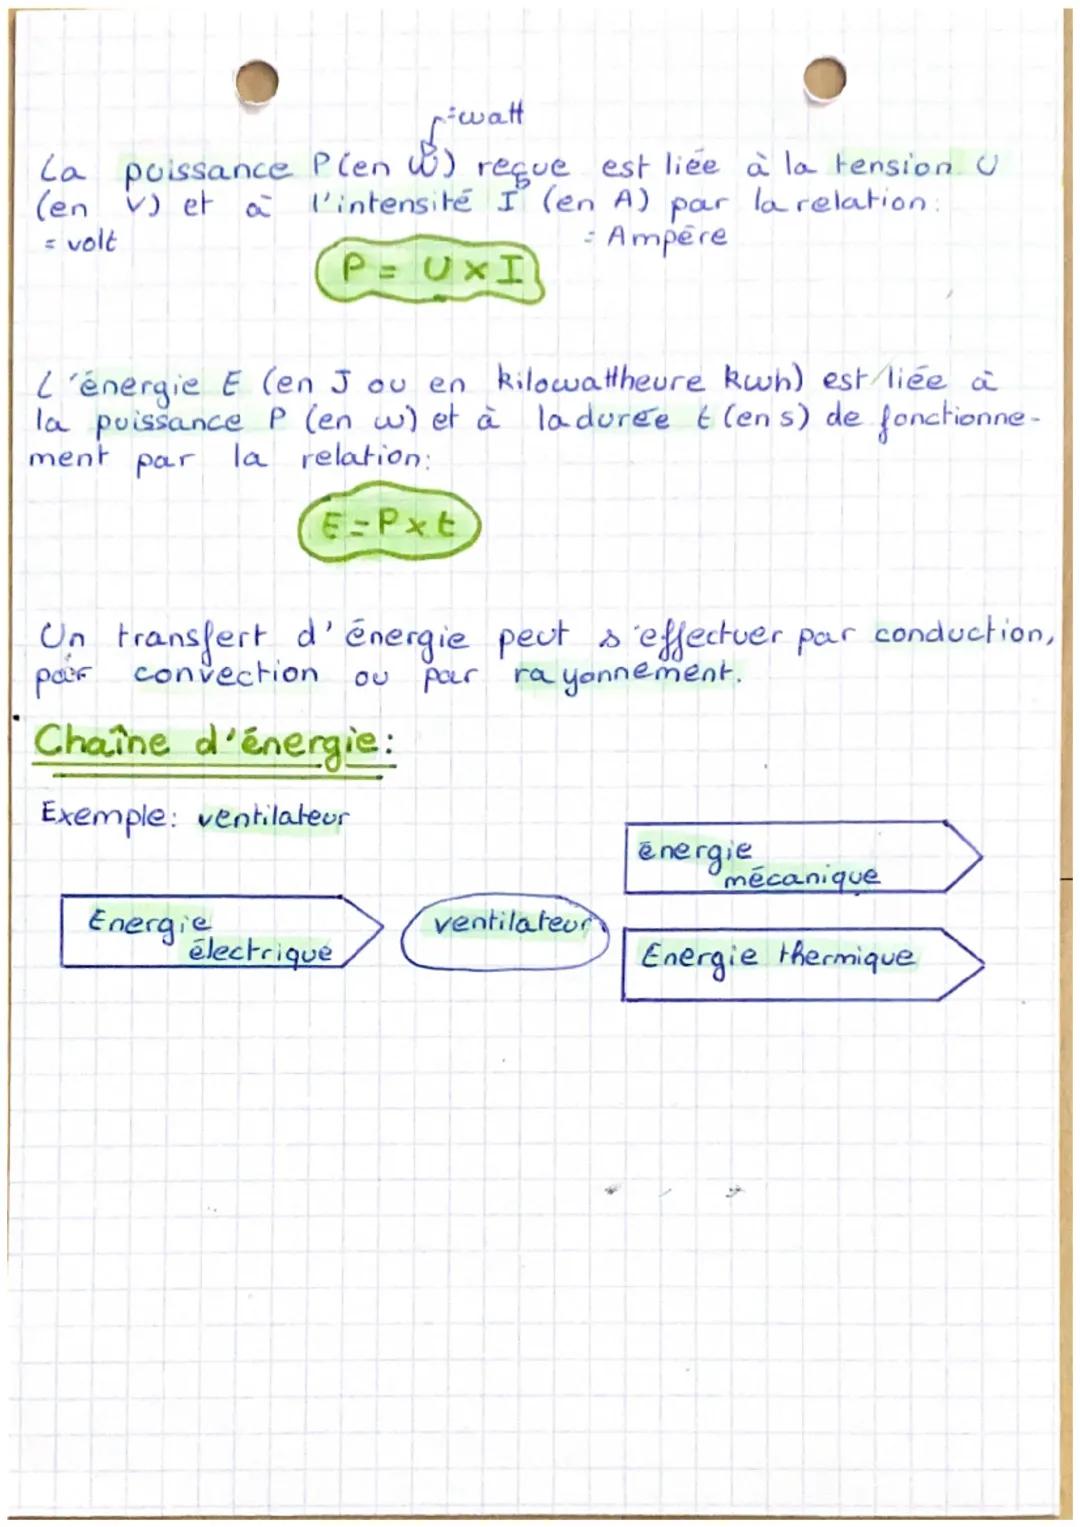 =watt
La puissance P (en W) reçue est liée à la tension U
(en V) et à l'intensité I (en A) par la relation:
= volt
= Ampère
P = U × I
L'énergie E (en J ou en kilowattheure kwh) est liée à
la puissance P (en w) et à la durée t (en s) de fonctionne-
ment par la relation:
E = P × t
Un transfert d'énergie peut s'effectuer par conduction,
par convection ou par rayonnement.
Chaîne d'énergie:
Exemple: ventilateur
énergie
mécanique
Energie
électrique
ventilateur
Energie thermique